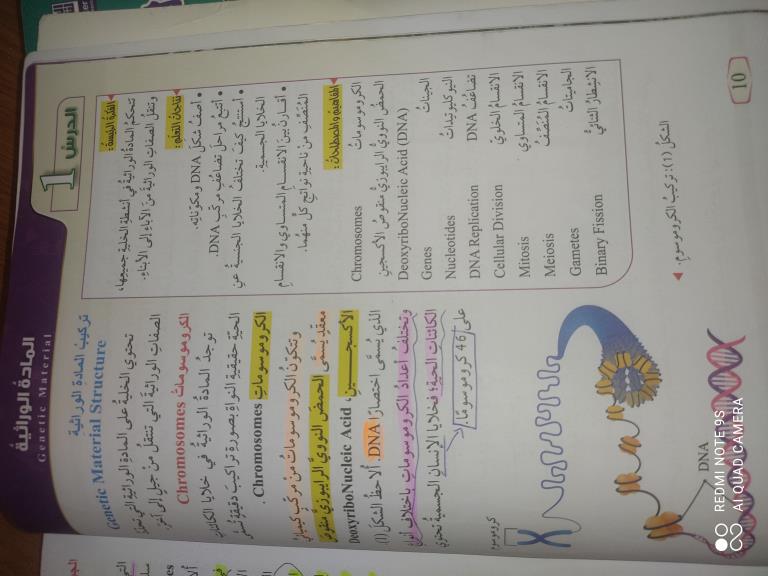 المادة الوراثية
Genetic Material
الدرس 1
الفكرة الرئيسة:
تتحكم المادة الوراثية في أنشطة الخلية جميعها،
وتنقل الصفات الوراثية من الآباء إلى الأبناء.
نتاجات التعلم:
• أصف شكل DNA ومكوناته.
• أتتبع مراحل تضاعف مركب DNA.
• أستنتج كيف تختلف الخلايا الجنسية عن
الخلايا الجسمية.
• أقارن بين الانقسام المتساوي والانقسام
المنصف من ناحية نواتج كل منهما.
المفاهيم والمصطلحات:
الكروموسومات Chromosomes
الحمض النووي الرايبوزي منقوص الأكسجين
DeoxyriboNucleic Acid (DNA)
الجينات Genes
النيوكليوتيدات Nucleotides
تضاعف DNA DNA Replication
الانقسام الخلوي Cellular Division
الانقسام المتساوي Mitosis
الانقسام المنصف Meiosis
الجاميتات Gametes
الانشطار الثنائي Binary Fission
تركيب المادة الوراثية
Genetic Material Structure
تحتوي الخلية على المادة الوراثية التي
الصفات الوراثية التي تنتقل من جيل إلى آخر.
الكروموسومات Chromosomes
توجد المادة الوراثية في خلايا الكائنات
الحية حقيقية النواة بصورة تراكيب دقيقة
الكروموسومات Chromosomes.
وتتكون الكروموسومات من مركب كيميائي
معقد يسمى الحمض النووي الرايبوزي منقوص
الأكسجين DeoxyriboNucleic Acid
الذي يسمى اختصارا DNA، ألاحظ الشكل (1).
وتختلف أعداد الكروموسومات باختلاف أنواع
الكائنات الحية؛ فخلايا الإنسان الجسمية تحتوي
على 46 كروموسوما.
كروموسوم
DNA
الشكل (1): تركيب الكروموسوم.
10
REDMI NOTE 9S
AI QUAD CAMERA